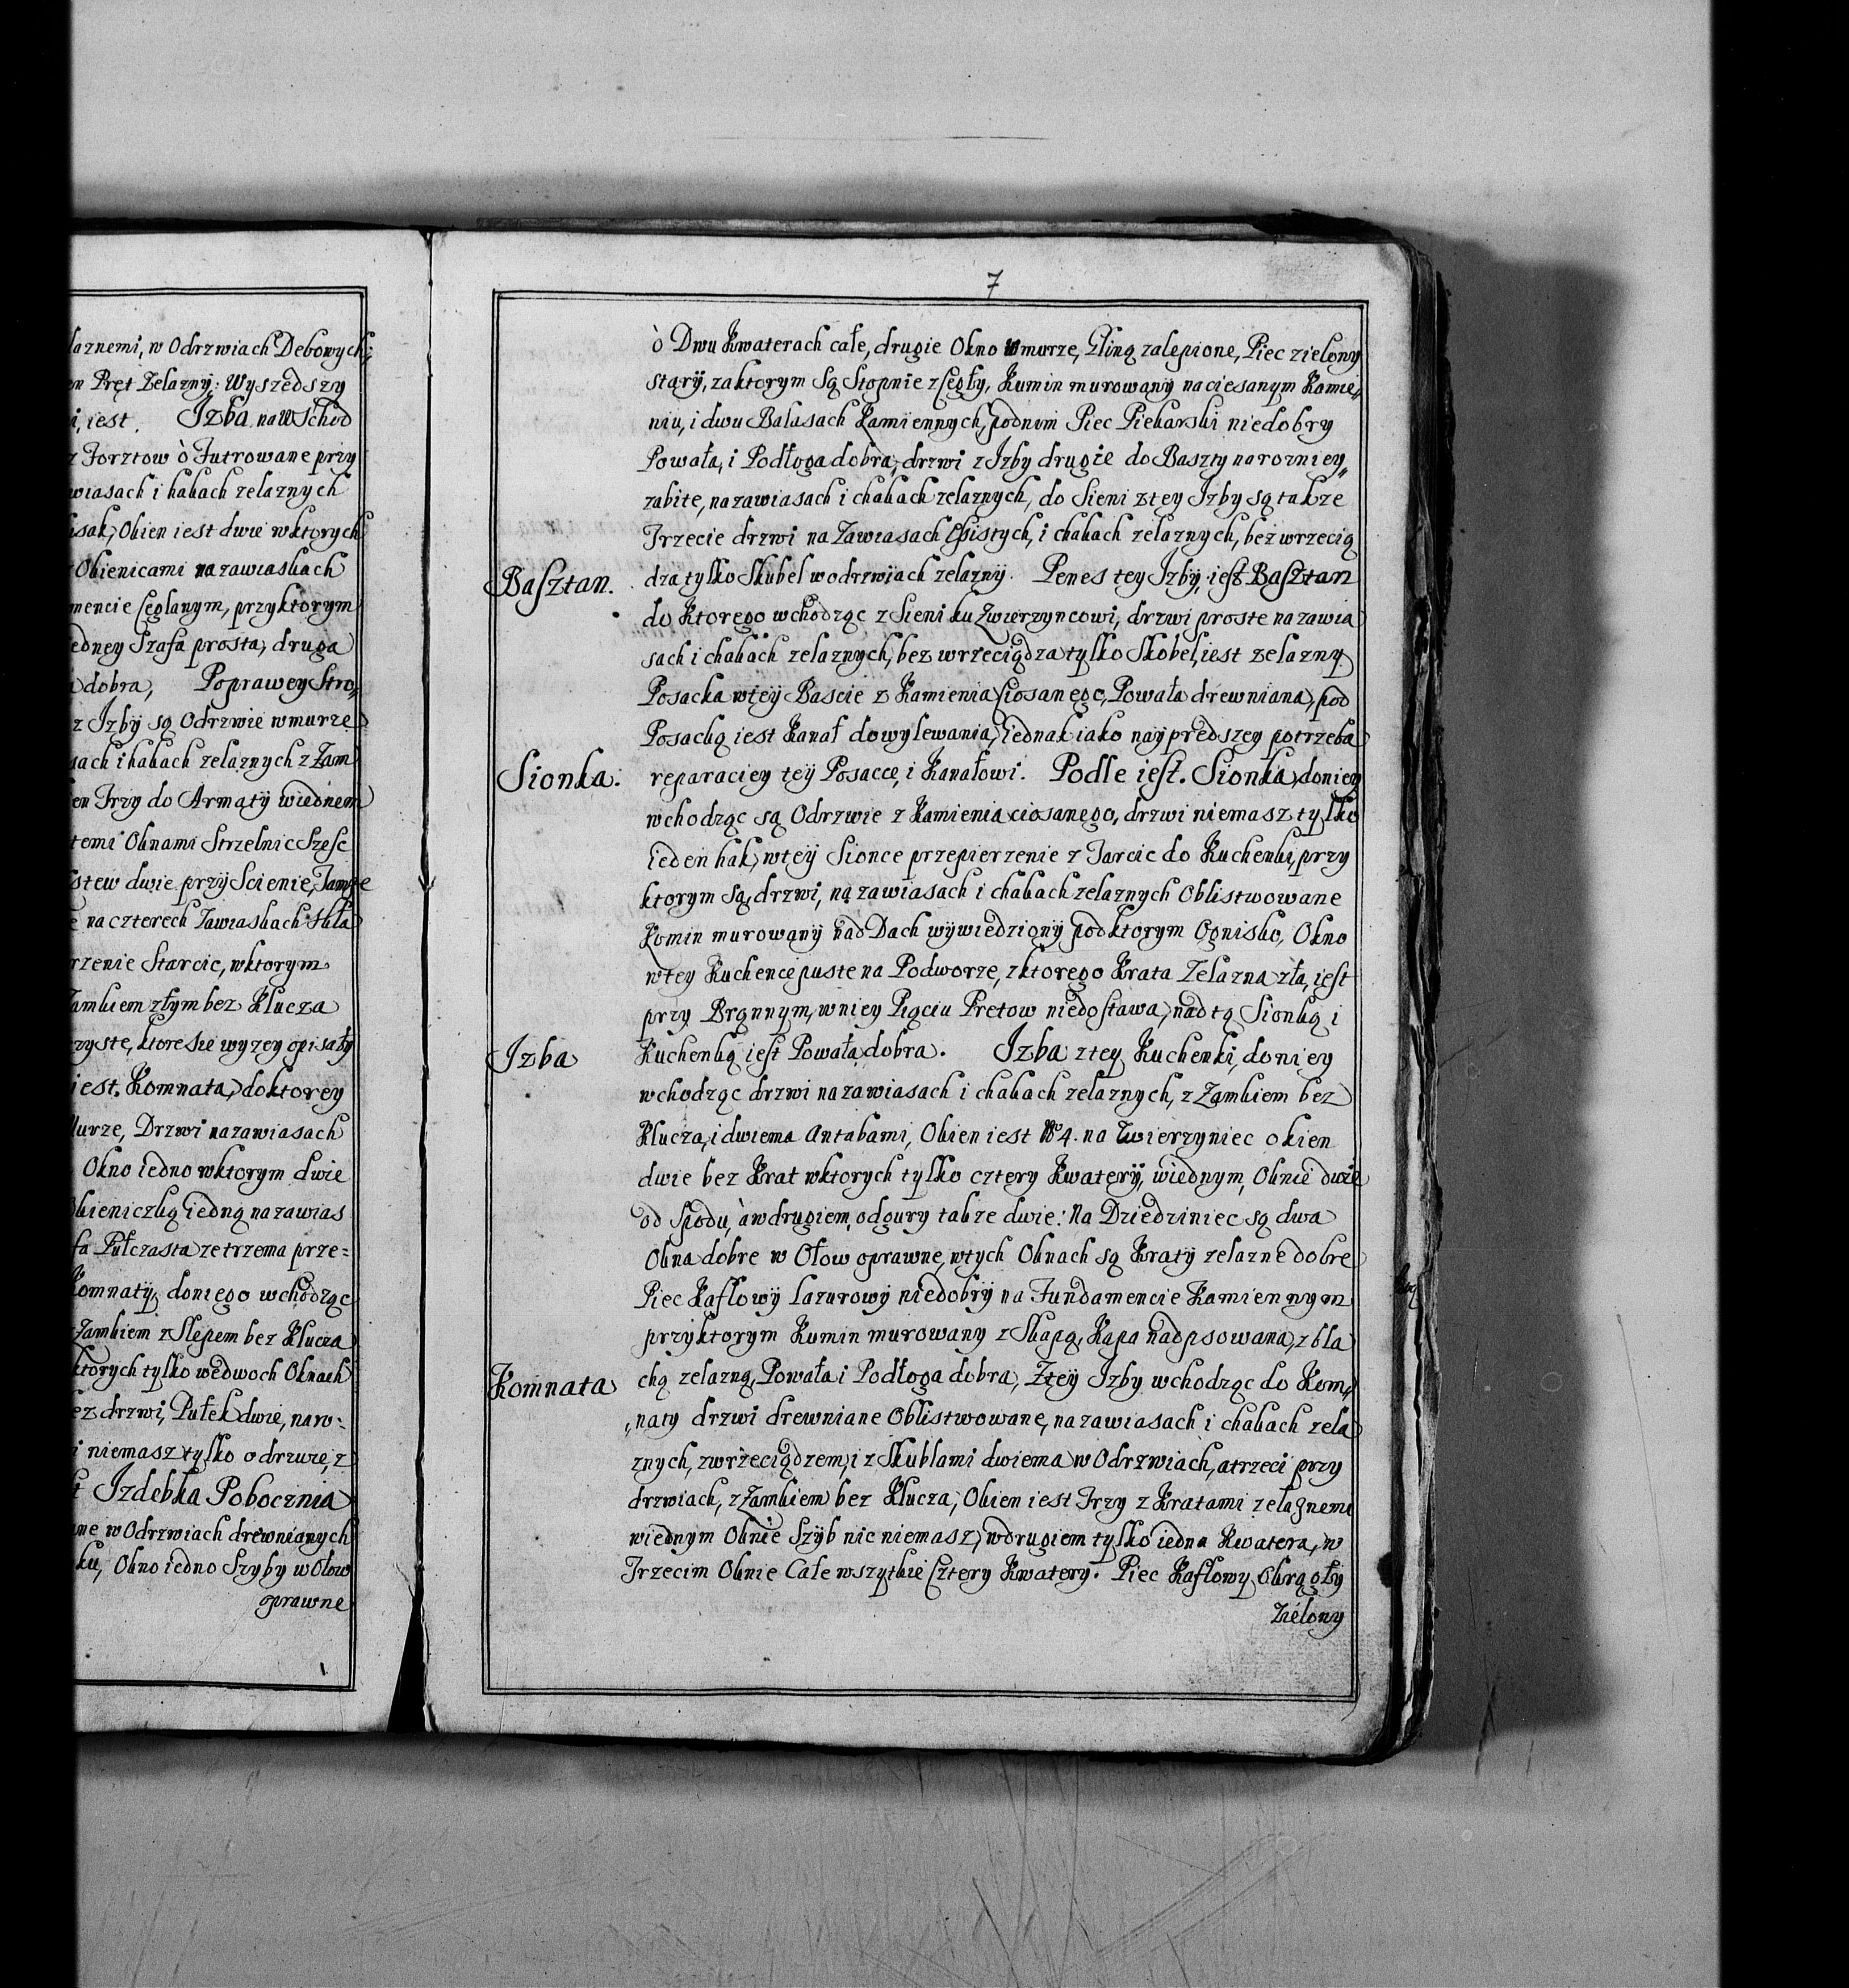 laznemi, w Odrzwiach Debowych;
en Pręt Zelazny: Wyszedszy
i, iest. Izba na WSchod
z Forztow ò Futrowane przy
wiasach i hakach zelaznych
isak, Okien iest dwie wktorych
Okienicami na zawiaskach
mencie Ceglanym, przyktorym
edney Szafa prosta, druga
a dobra, Poprawey Stro„
z Izby są Odrzwie wmurze
sach i hakach zelaznych z Zam
en Trzy do Armaty wiednem
temi Oknami Strzelnic Szesc
stew dwie przy Scienie, Tamze
e na czterech Zawiaskach Skła
rzenie Starcic, wktorym
Zamkiem złym bez Klucza
rzyste, ktore sie wyzey opisały
iest. Komnata, doktorey
Murze, Drzwi na zawiasach
Okno iedno wktorym dwie
Okieniczką iedną na zawias
fa Pułczasta ze trzema prze=
Komnaty, doniego wchodząc
Zamkiem z Slepem bez Klucza
ktorych tylko wedwoch Oknach
ez drzwi, Pułek dwie, na ro-:
i niemasz tylko odrzwie, z
Izdebka Pobocznia
ane w Odrzwiach drewnianych
ku, Okno iedno Szyby w Ołow
oprawne
7
ò Dwu Kwaterach całe, drugie Okno w murze, Gliną zalepione, Piec zielony
stary, zaktorym są Stopnie z Cegły, Kumin murowany naciesanym Kamie„
niu, i dwu Balasach Kamiennych, podnim Piec Piekarski niedobry
Powała, i Podłoga dobra, drzwi z Izby drugie do Baszty narozniey„
zabite, na zawiasach i chakach zelaznych, do Sieni ztey Izby są takze
Trzecie drzwi na Zawiasach Esistych, i chakach zelaznych, bez wrzecią
Basztan.
dza tylko Skubel wodrzwiach zelazny. Penes tey Izby, iest Basztan
do Ktorego wchodząc z Sieni ku Zwierzyncowi, drzwi proste na zawia
sach i chakach zelaznych, bez wrzeciądza tylko Skobel, iest zelazny
Posacka wtey Bascie z Kamienia Ciosanego, Powała drewniana, pod
Posacką iest Kanał dowylewania, iednak iako naypredszey potrzeba
Sionka.
reparaciey tey Posacce, i Kanałowi. Podle iest. Sionka, doniey
wchodząc są Odrzwie z Kamienia ciosanego, drzwi niemasz tylko
ieden hak, wtey Sionce przepierzenie z Tarcic do Kuchenki, przy
ktorym są, drzwi, na zawiasach i chakach zelaznych Oblistwowane
Komin murowany nad Dach wywiedziony, podktorym Ognisko, Okno
wtey Kuchence puste na Podworze, z ktorego Krata Zelazna zła, iest
przy Brąnnym, wniey Pięciu Pretow niedostawa, nad tą Sionką i
Izba
Kuchenką iest Powała dobra. Izba ztey Kuchenki, doniey
wchodząc drzwi na zawiasach i chakach zelaznych, z Zamkiem bez
Klucza, i dwiema Antabami, Okien iest No 4. na Zwierzyniec okien
dwie bez Krat wktorych tylko cztery Kwatery, wiednym, Oknie dwie
od Spodu, à wdrugiem, odgury takze dwie: Na Dziedziniec są dwa
Okna dobre w Ołow oprawne, wtych Oknach są Kraty zelazne dobre
Piec Kaflowy Lazurowy niedobry na Fundamencie Kamiennym
przyktorym Kumin murowany z Skapą, Kapa nadpsowana, z bla
Komnata
chą zelazną, Powała i Podłoga dobra, Ztey Izby wchodząc do Kom„
„naty drzwi drewniane Oblistwowane, na zawiasach i chakach zela
znych, zwrzeciądzem, i z Skublami dwiema w Odrzwiach, atrzeci przy
drzwiach, z Zamkiem bez Klucza, Okien iest Trzy z Kratami zelaznemi
wiednym Oknie Szyb nic niemasz, wdrugiem tylko iedna Kwatera, w
Trzecim Oknie Całe wszytkie Cztery Kwatery. Piec Kaflowy Okrągły
Zielony